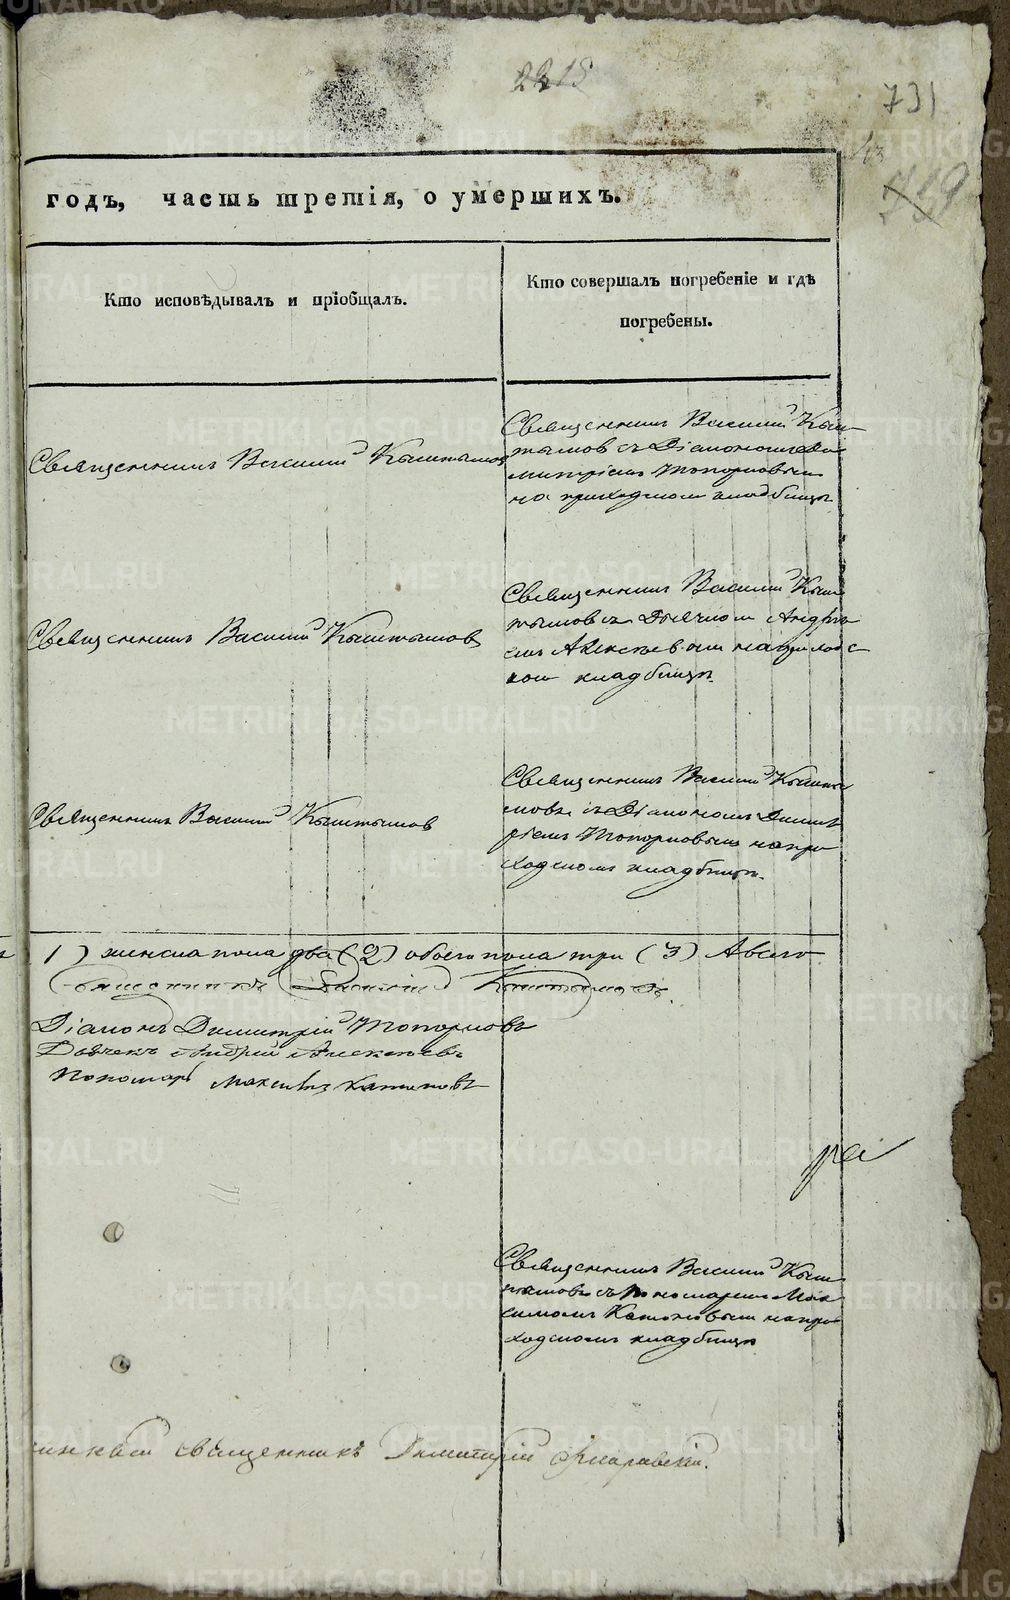 2215
731
739
годъ, часть третія, о умершихъ.
Кто исповѣдывалъ и пріобщалъ.
Кто совершалъ погребеніе и гдѣ
погребены.
Священникъ Василий Кыштымовъ
Священникъ Василий Кыш-
тымов съ Діакономъ Ди
митріемъ Топорковым
на приходском кладбищѣ
Священникъ Василий Кыштымовъ
Священникъ Василий Кыш
тымовъ съ Дьячком Андрѣ
емъ Алексѣевым на приходс
ком кладбищѣ.
Священникъ Василий Кыштымов
Священникъ Василий Кышты
мовъ съ Діакономъ Димит
ріемъ Топорковымъ на при
ходскомъ кладбищѣ.
1) женска пола два (2) обоего пола три (3) А всего
Священникъ Василий Кыштымовъ.
Діаконъ Димитрій Топорковъ
Дьячекъ Андрей Алексѣевъ
Пономарь Максимъ Катановъ
Священникъ Василий Кыш
тымовъ съ Пономаремъ Мак
симомъ Катановым на при
ходскомъ кладбищѣ
священникъ Димитрій
METRIKI.GASO-URAL.RU